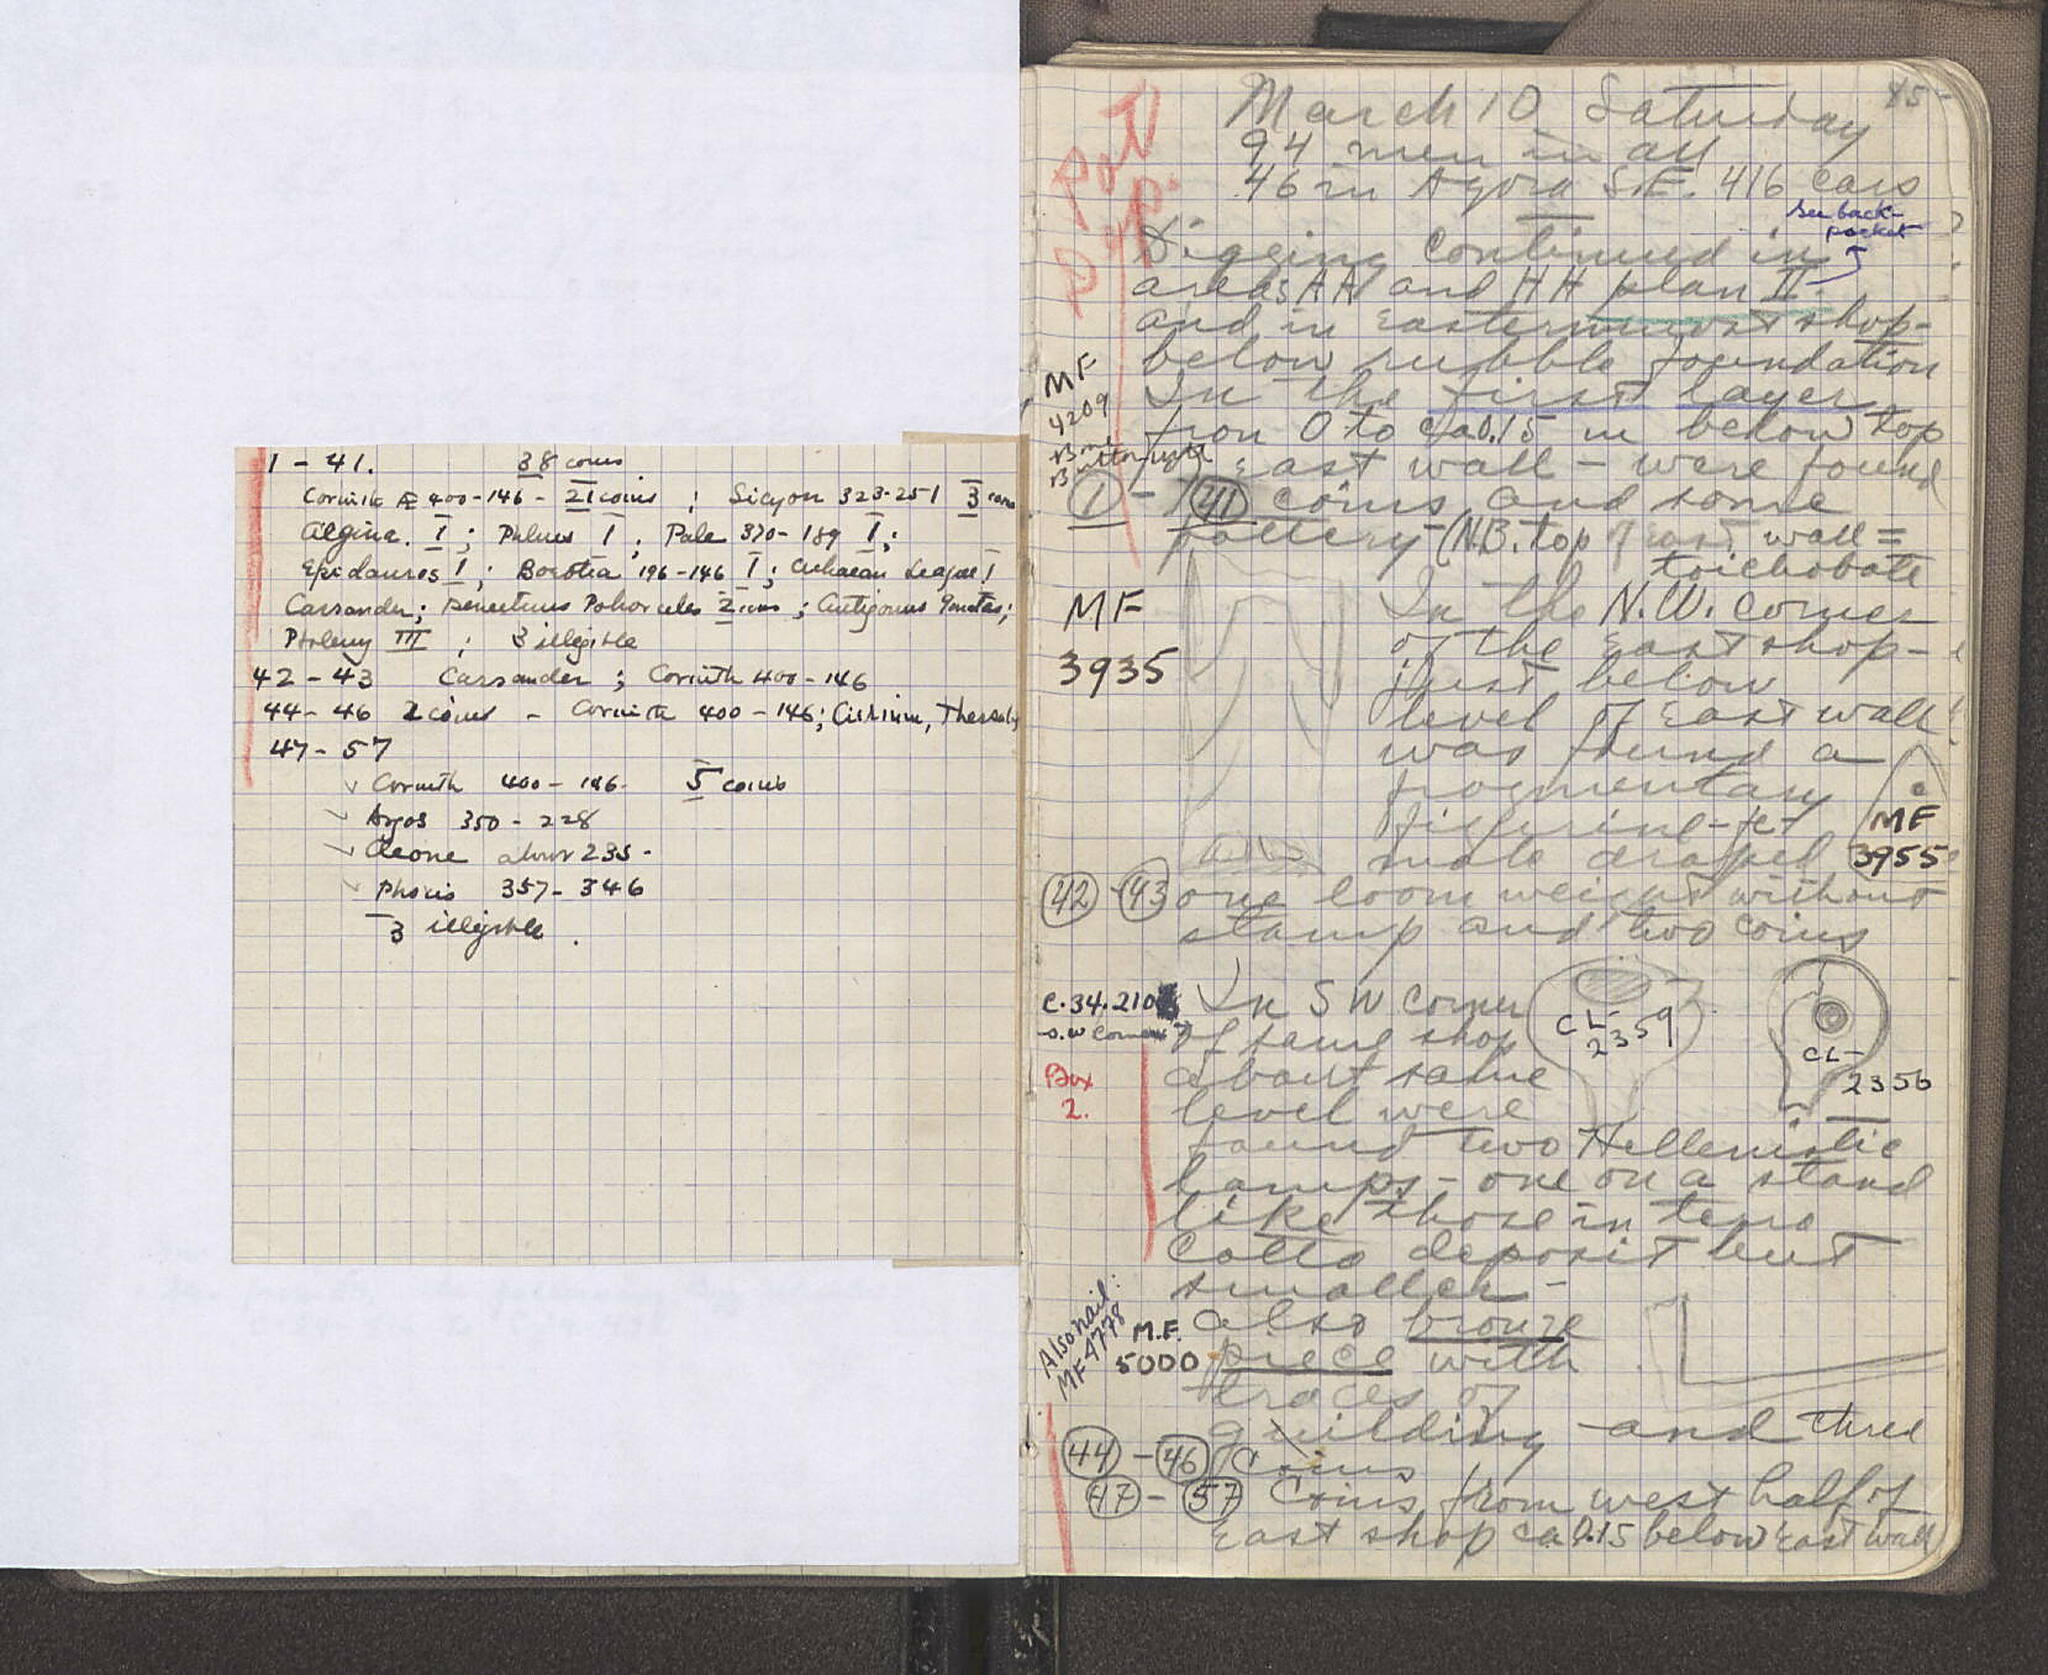 1 - 41. 38 coins
Corinth Æ 400-146 - 21 coins ; Sicyon 323-251 3 coins
Aegina. 1 ; Phlius 1 ; Pale 370-189 1 ;
Epidauros 1 ; Boeotia 196-146 1 ; Achaean League 1
Cassander ; Demetrius Poliorcetes 2 coins ; Antigonus Gonatas ;
Ptolemy III ; 3 illegible
42 - 43 Cassander ; Corinth 400-146
44 - 46 2 coins - Corinth 400-146 ; Cierium, Thessaly
47 - 57
Corinth 400-146- 5 coins
Argos 350 - 228
Cleone about 235 -
Phocis 357 - 346
3 illegible .
45
March 10 Saturday
94 men in all
46 in Agora S.E. 416 cars
see back-
pocket
Pot
Dep.
Digging continued in
areas AA and HH plan II
and in easternmost shop-
below rubble foundation
In the first layer
from 0 to ca 0.15 m below top
of East wall - were found
MF
4209
1 - 41 coins and some
pottery - (N.B. top of east wall =
toichobate
MF
3935
In the N.W. corner
of the East shop-
just below
level of East wall
was found a
fragmentary
figurine - fe-
male draped
MF
3955
42 - 43 one loom weight without
stamp and two coins
C.34.210
S.W corner
Box
2.
In S W corner
of same shop
about same
level were
found two Hellenistic
lamps - one on a stand
like those in terra
cotta deposit but
smaller -
CL-
2359
CL-
2356
Also nail:
MF 4778
M.F.
5000
also bronze
piece with
traces of
guilding and three
44 - 46 coins
47 - 57 Coins from west half of
East shop ca 0.15 below East wall